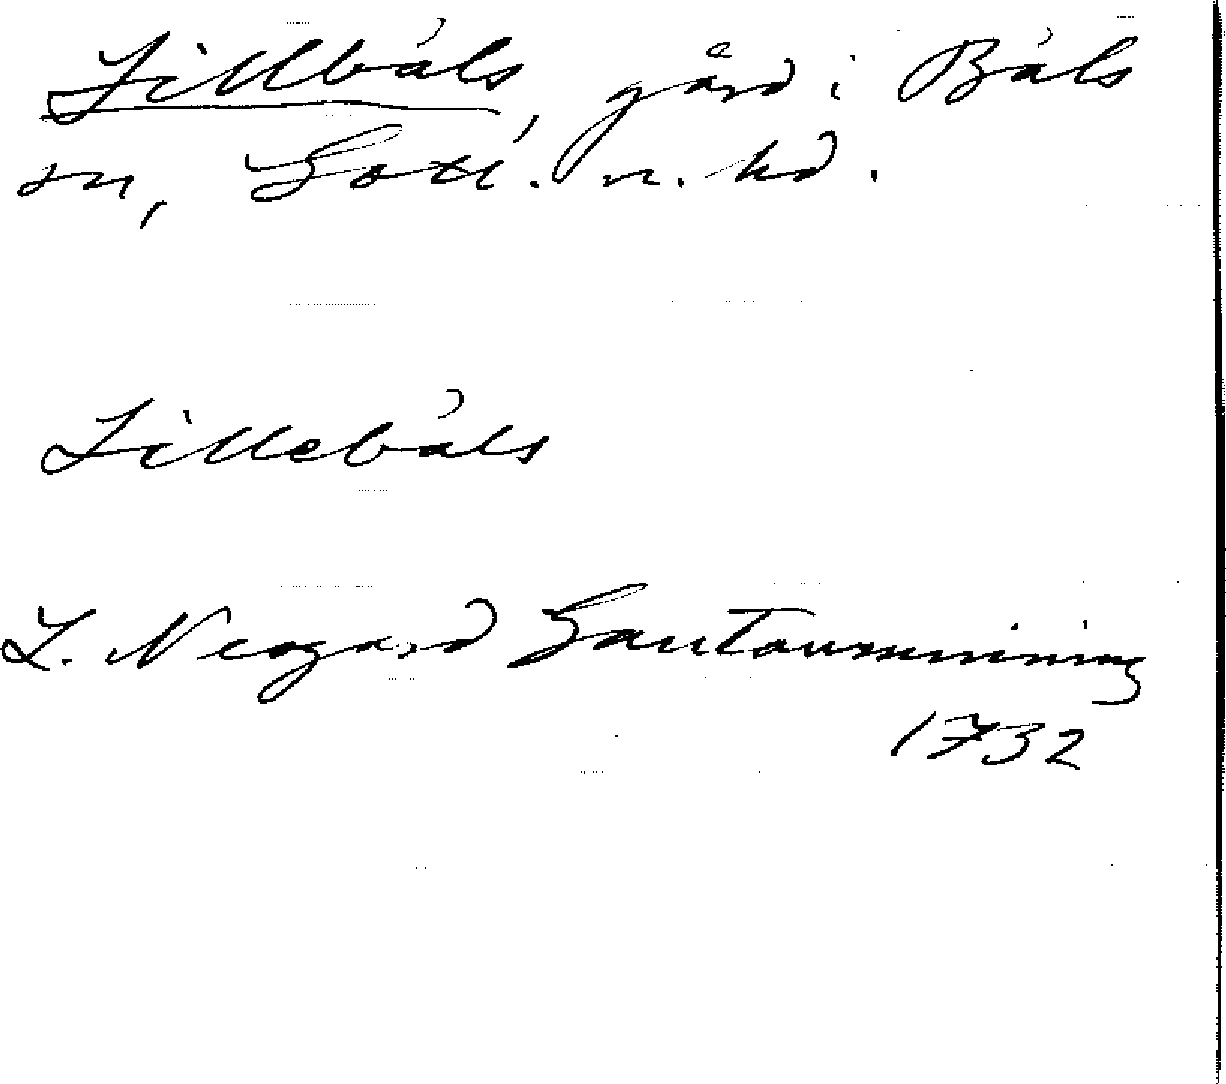 Lillbåls, gård i Båls
sn, Gotl. n. hd.
Lillebåls
L. Neogard Gautauminning
1732